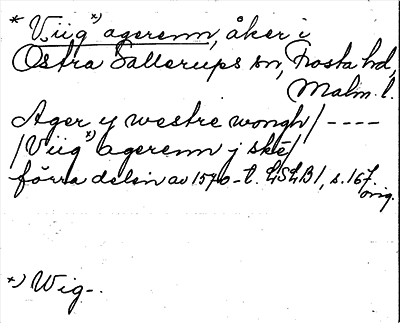 * Viig*) agerenn, åker i
Östra Sallerups sn, Frosta hd,
Malm. l.
Ager y westre wongh / ----
/ Viig*) agerenn j skē/
förra delen av 1570-t. LSLB /, s. 167.
orig.
*) Wig-.